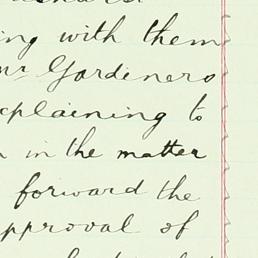 ing with them
Mr Gardiners
explaining to
in the matter
forward the
approval of